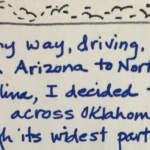 way, driving.
Arizona to
I decided
across Oklahom
its widest part